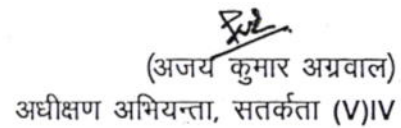 (अजय कुमार अग्रवाल)
अधीक्षण अभियन्ता, सतर्कता (V)IV